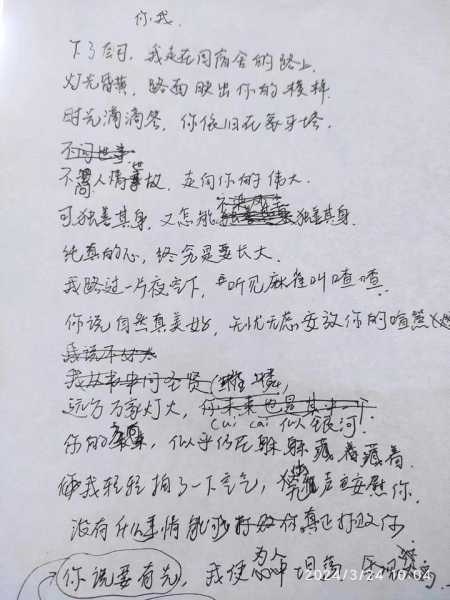 你我.
下了自习, 我走在回宿舍的路上.
灯光昏黄, 路面映出你的模样.
时光滴滴答, 你依旧在象牙塔.
不问世事
不问人情世故, 走向你的伟大.
可独善其身, 又怎能 独善其身.
纯真的心, 终究是要长大.
我路过一片夜空下, 听见麻雀叫喳喳.
你说自然真美好, 无忧无虑安放你的喧
我说不
我从书中问圣贤
远方万家灯火, 你未来也是其中一个
(cui can 似银河.
你的 , 似乎仍在躲躲藏着藏着.
我轻轻拍了一下空气, 声安慰你.
没有什么事情能够打败你真正打败你
你说要有光, 我便
2024/3/24 10:04